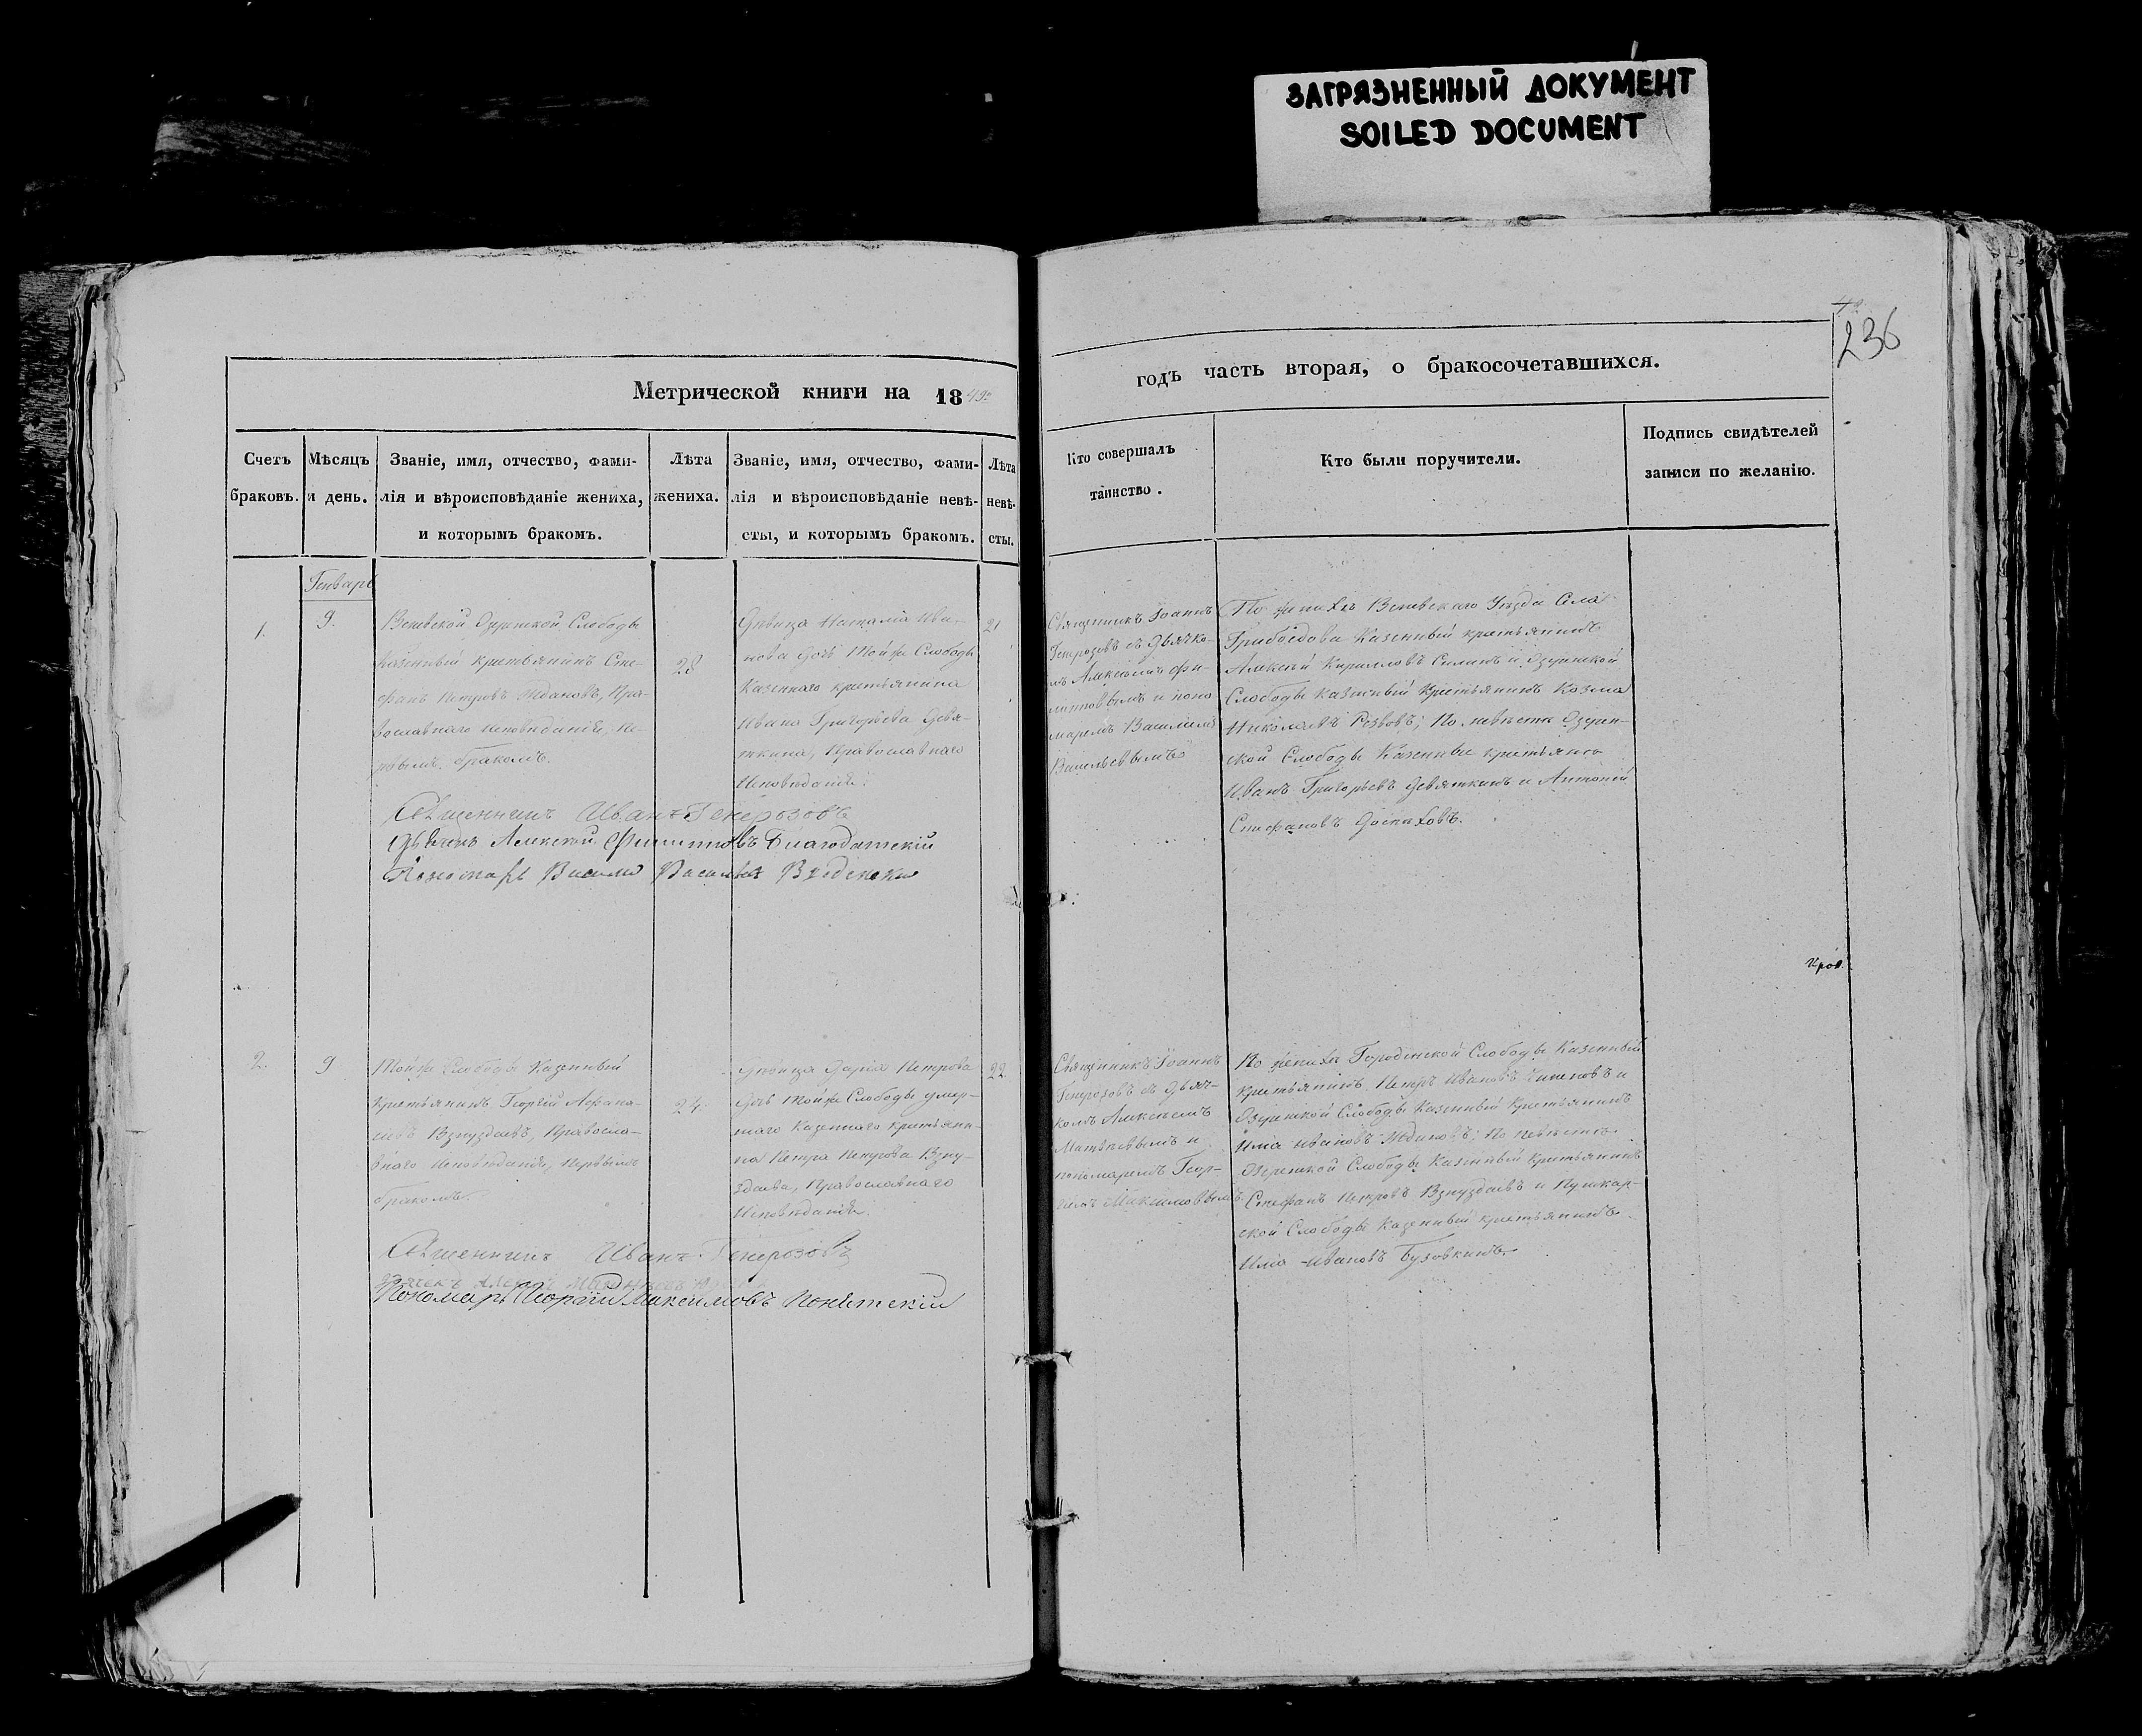 ЗАГРЯЗНЕННЫЙ ДОКУМЕНТ
SOILED DOCUMENT
236
Метрической книги на 1849
годъ часть вторая, о бракосочетавшихся.
Счетъ
браковъ.
Мѣсяцъ
и день.
Званіе, имя, отчество, фами-
лія и вѣроисповѣданіе жениха,
и которымъ бракомъ.
Лѣта
жениха.
Званіе, имя, отчество, фами-
лія и вѣроисповѣданіе невѣ-
сты, и которымъ бракомъ.
Лѣта
невѣ-
сты.
Кто совершалъ
таинство.
Кто были поручители.
Подпись свидѣтелей
записи по желанію.
Генварь
1.
9.
Веневской Озеренской Слободы
Казенный крестьянинъ Сте-
фанъ Петровъ Ждановъ, Пра-
вославнаго исповѣданія, пе-
рвымъ бракомъ.
28
Дѣвица Наталія Ива-
нова дочь Той же Слободы
Казеннаго крестьянина
Ивана Григорьева Девя-
ткина, Православнаго
Исповѣданія.
21
Священникъ Іоаннъ
Генерозовъ съ Дьячко-
мъ Алексѣемъ Фи-
липповымъ и поно-
маремъ Василіемъ
Васильевымъ
По женихѣ Веневскаго Уѣзда Села
Грибоѣдова Казенный крестьянинъ
Алексѣй Кирилловъ Силинъ и Озеренской
Слободы Казенный Крестьянинъ Козма
Николаевъ Резвовъ; По невѣстѣ Озерен-
ской Слободы Казенные крестьяне
Иванъ Григорьевъ Девяткинъ и Антоній
Стефановъ Доскаховъ.
Священникъ Иванъ Генерозовъ
Дьячекъ Алексѣй Филипповъ Благодатскій
Пономарь Василій Васильевъ Введенскій
2.
9
Той же Слободы Казенный
Крестьянинъ Георгій Афана-
сіевъ Взнуздаевъ, Правосла-
внаго исповѣданія, первымъ
бракомъ.
24.
Дѣвица Дарія Петрова
дочь Той же Слободы умер-
шаго Казеннаго крестьяни-
на Петра Петрова Взну-
здаева, Православнаго
Исповѣданія.
22.
Священникъ Іоаннъ
Генерозовъ съ Дьяч-
комъ Алексѣемъ
Матвѣевымъ и
пономаремъ Геор-
гіемъ Максимовымъ.
По женихѣ Городенской Слободы Казенный
крестьянинъ Петръ Ивановъ и
Озеренской Слободы Казенный Крестьянинъ
Илія Ивановъ Ждановъ; По невѣстѣ
Озеренской Слободы Казенный Крестьянинъ
Стефанъ Петровъ Взнуздаевъ и Пушкар-
ской Слободы Казенный крестьянинъ
Илія Ивановъ Бузовкинъ.
Священникъ Иванъ Генерозовъ
Дьячекъ Алексѣй
Пономарь Георгій Максимовъ